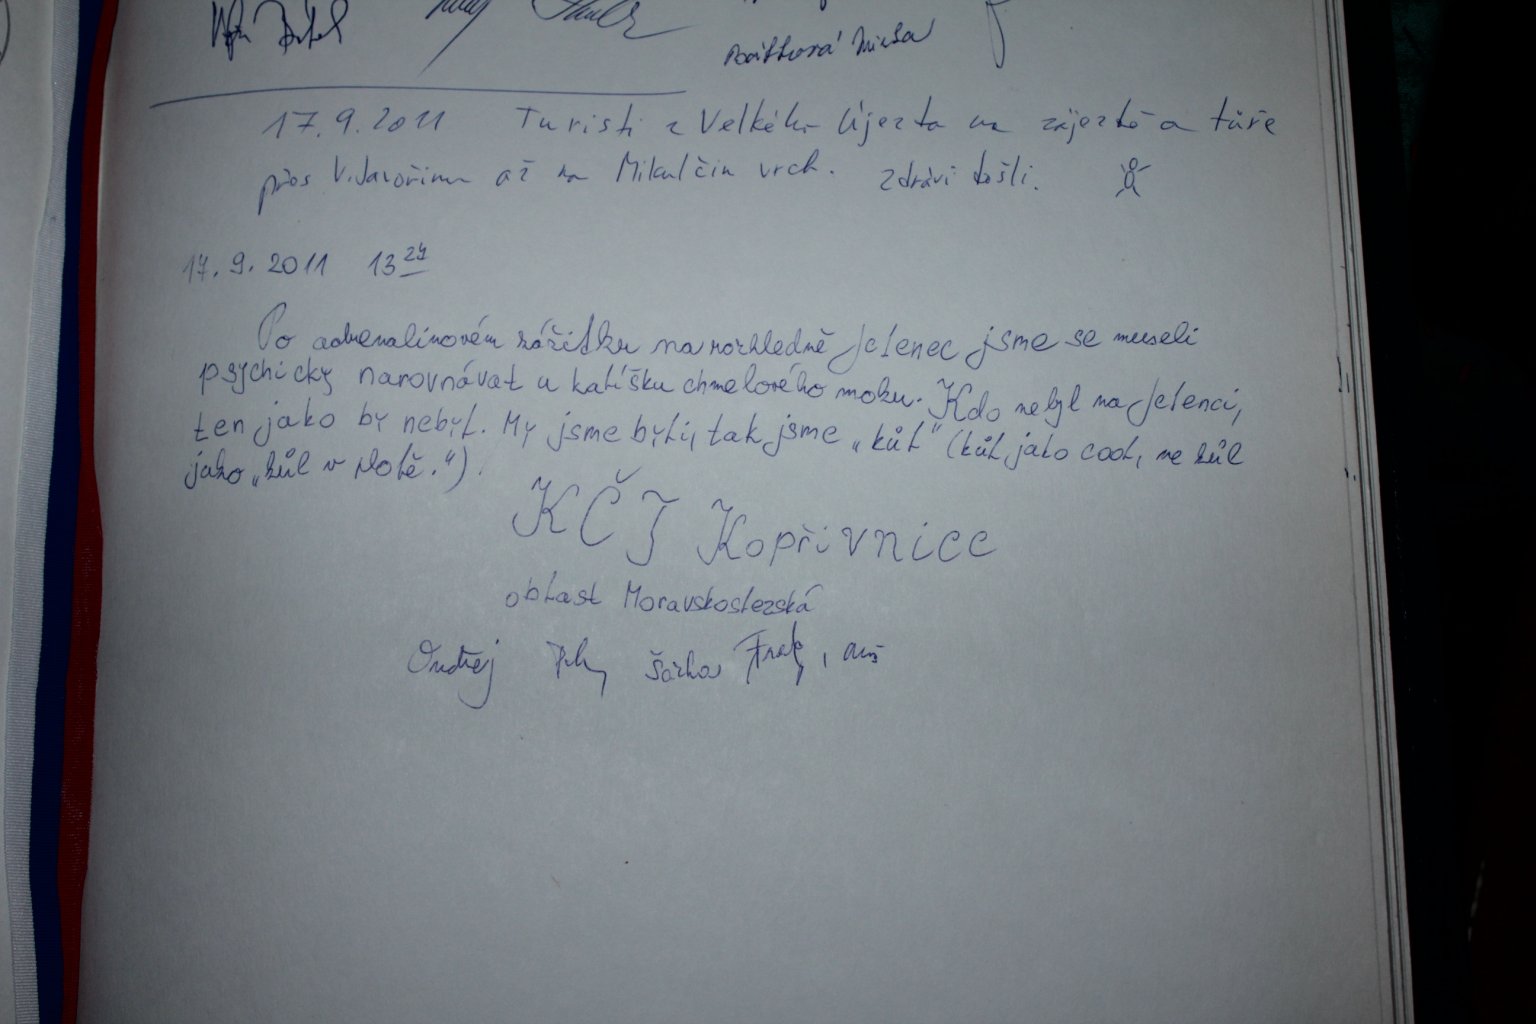 17.9.2011 Turisti z Velkého Újezda na zájezdě a túře
přes V. Javořinu až na Mikulčin vrch. Zdrávi došli.
17.9.2011 13 24
Po adrenalinovém zážitku na rozhledně Jelenec jsme se museli
psychicky narovnávat u kalíšku chmelového moku. Kdo nebyl na Jelenci,
ten jako by nebyl. My jsme byli, tak jsme „kůl“ (kůl jako cool, ne kůl
jako „kůl v plotě.“).
KČT Kopřivnice
oblast Moravskoslezská
Ondřej Šárka